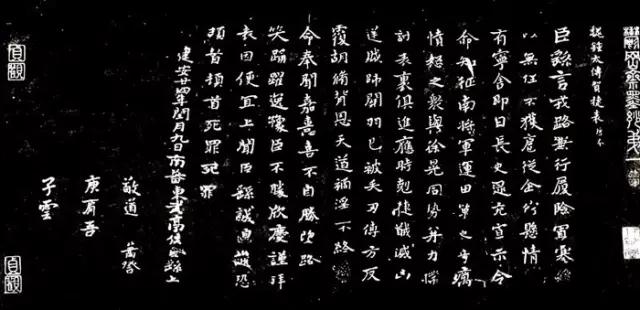 魏鍾太傅賀捷表
臣繇言戎路兼行履險冒寒
以無任不獲扈從企佇懸情
有寧舍即日長史逯充宣示令
命知征南將軍運田單之奇厲
憤怒之衆與徐晃同勢并力撲
討表裏俱進應時剋捷馘滅凶
逆賊帥關羽已被矢刃傅方反
覆胡脩背恩天道禍淫不終
命奉聞嘉憙喜不自勝望路
笑踊躍逸豫臣不勝欣慶謹拜
表因便宜上聞臣繇誠惶誠恐
頓首頓首死罪死罪
建安廿四年閏月九日南蕃東武亭侯臣繇上
敬道
庾肩吾
子雲
貞觀
貞觀